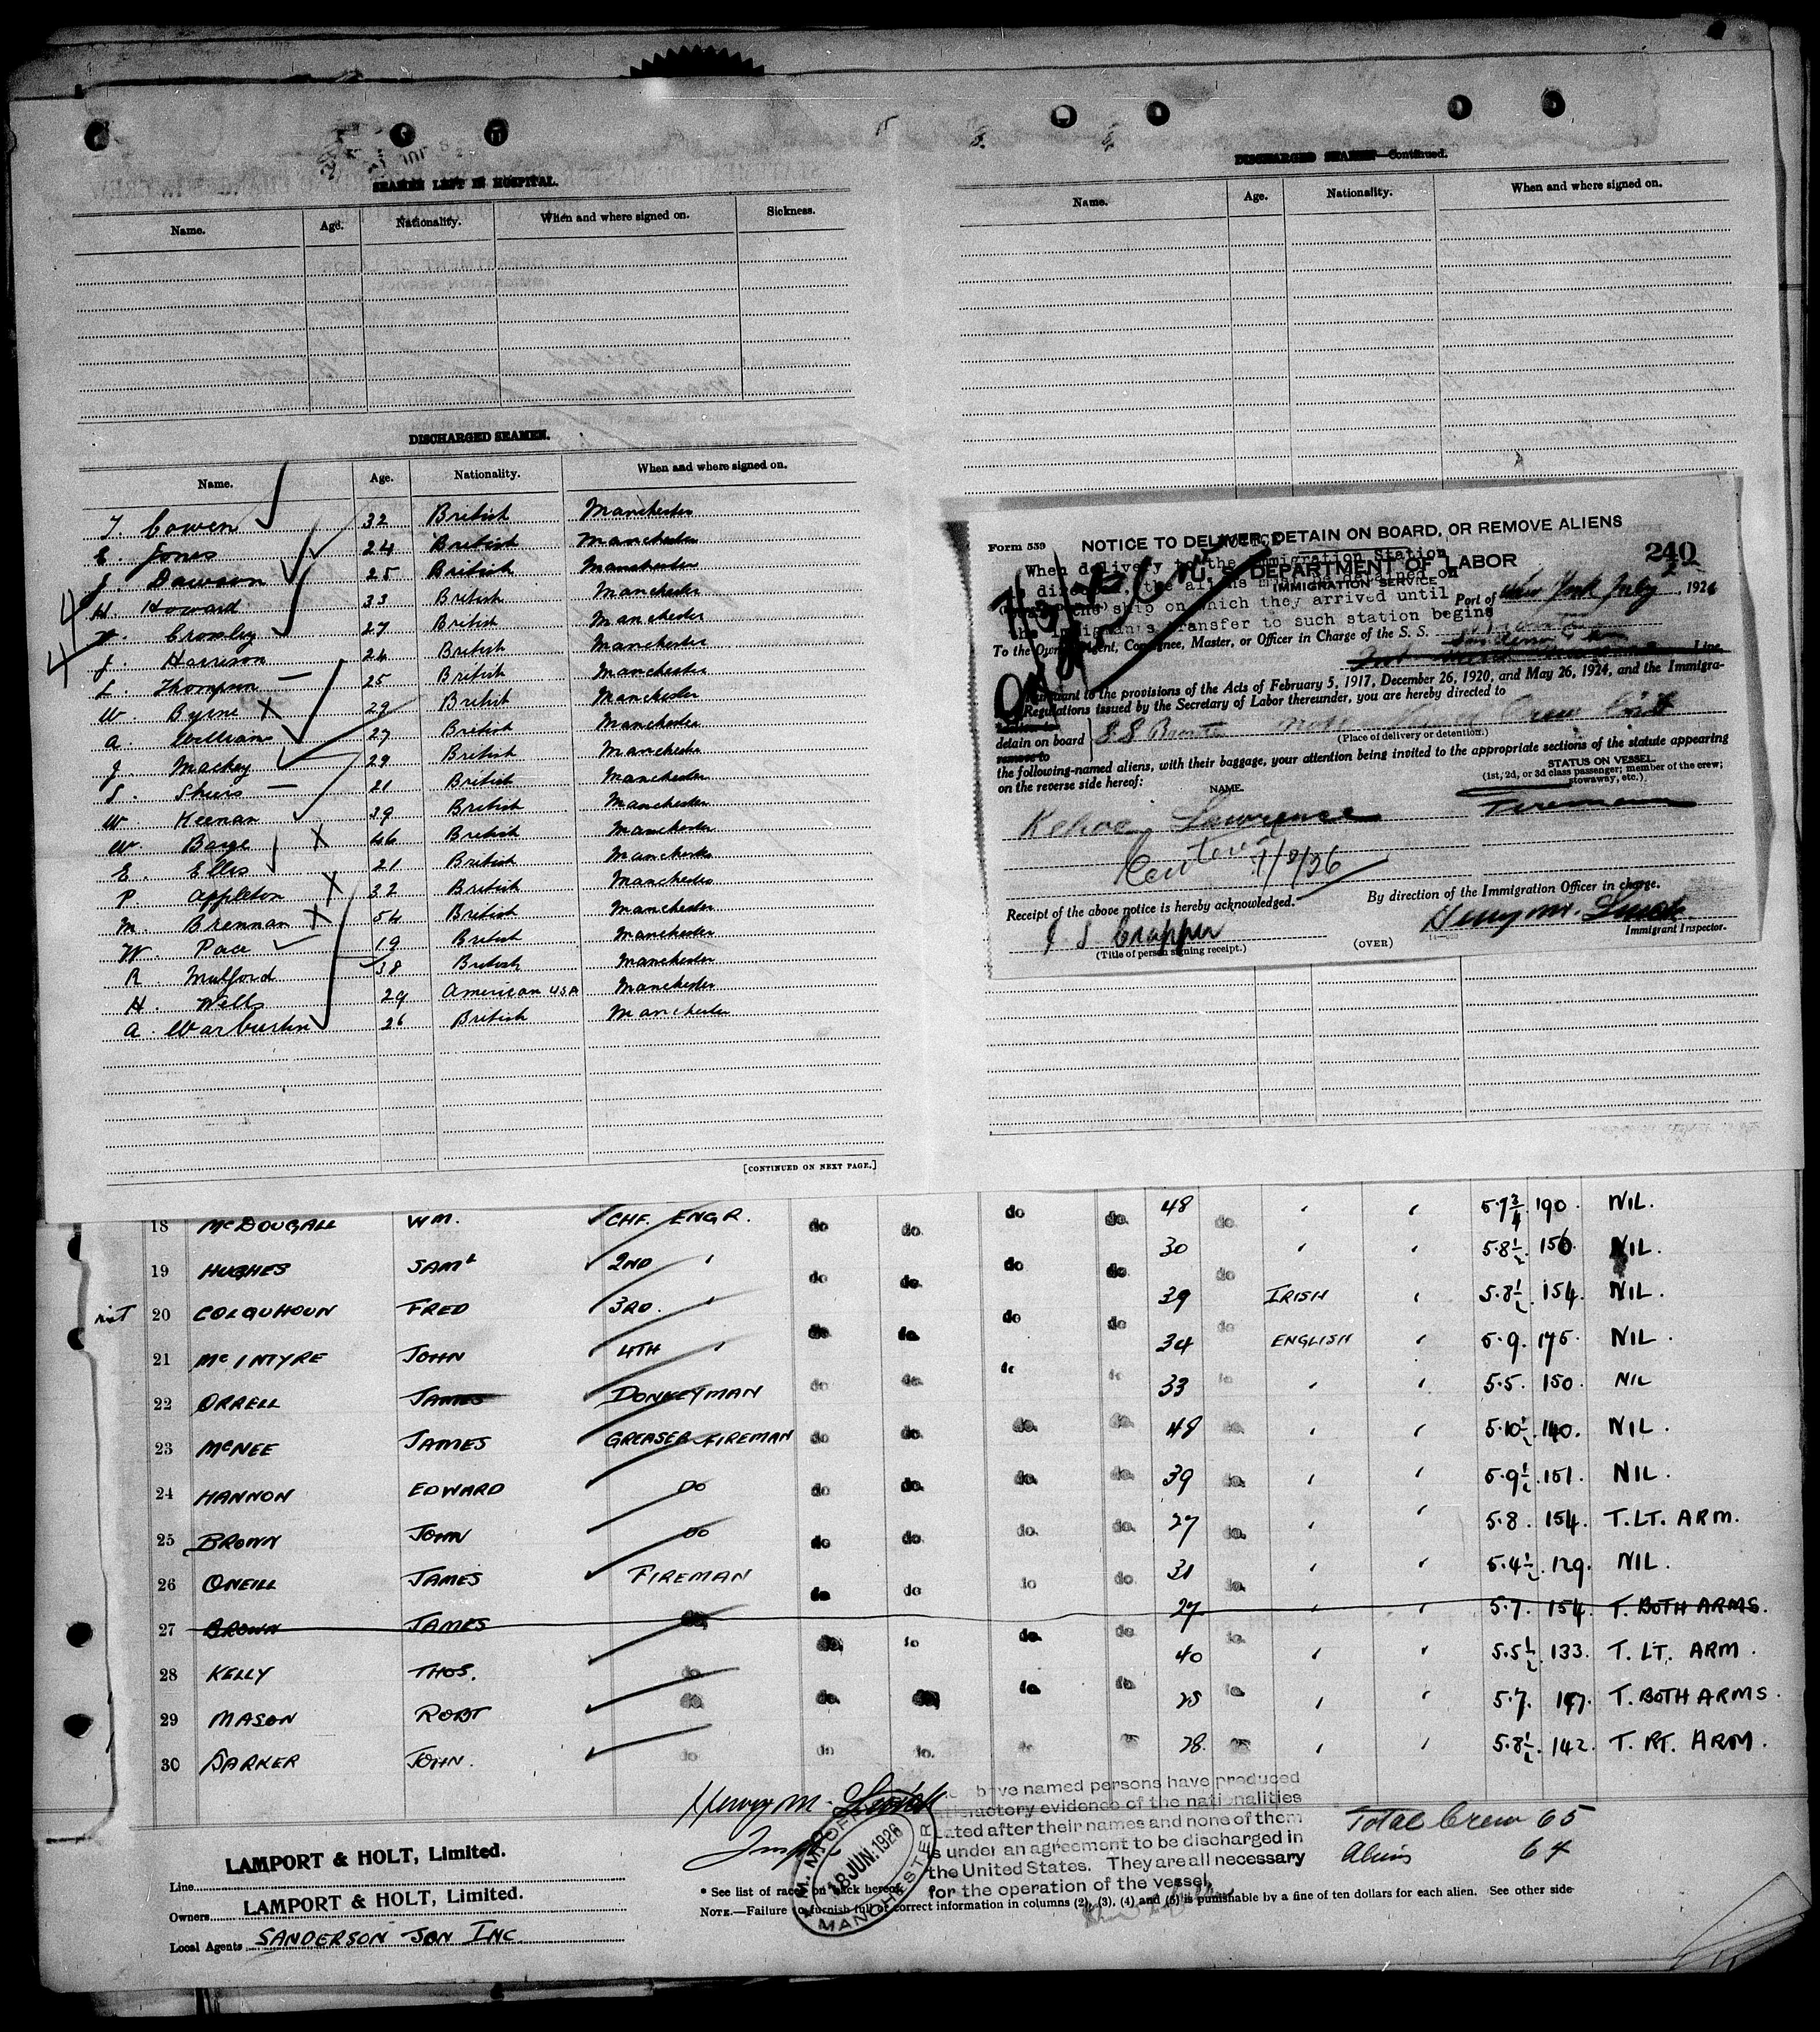 SEAMEN LEFT IN HOSPITAL.
Name. Age. Nationality. When and where signed on. Sickness.
DISCHARGED SEAMEN.
Name. Age. Nationality. When and where signed on.
T. Cowen 32 British Manchester
E. Jones 24 British Manchester
J. Dawson 25 British Manchester
H. Howard 33 British Manchester
Crossley 27 British Manchester
J. Harrison 24 British Manchester
L. Thompson 25 British Manchester
W. Byrne X 29 British Manchester
A. William 27 British Manchester
J. Mackey 29 British Manchester
S. 21 British Manchester
W. Keenan 39 British Manchester
W. Barge X 46 British Manchester
E. Ellis 21 British Manchester
P. Appleton X 32 British Manchester
M. Brennan X 54 British Manchester
W. Pace 19 British Manchester
R. Mulford 38 British Manchester
H. Wells 29 American USA Manchester
A. Warburton 26 British Manchester
[CONTINUED ON NEXT PAGE.]
DISCHARGED SEAMEN—Continued.
Name. Age. Nationality. When and where signed on.
Form 539
NOTICE TO DELIVER, DETAIN ON BOARD, OR REMOVE ALIENS
240
U. S. DEPARTMENT OF LABOR
IMMIGRATION SERVICE
When delivery to the Immigration Station
the ship on which they arrived until
transfer to such station begins
Port of New York July 2, 1926
To the Owner, Agent, Consignee, Master, or Officer in Charge of the S. S.
Line
Pursuant to the provisions of the Acts of February 5, 1917, December 26, 1920, and May 26, 1924, and the Immigra-
Regulations issued by the Secretary of Labor thereunder, you are hereby directed to
detain on board
remove to
S.S. Bronte
(Place of delivery or detention.)
the following-named aliens, with their baggage, your attention being invited to the appropriate sections of the statute appearing
on the reverse side hereof:
NAME.
STATUS ON VESSEL.
(1st, 2d, or 3d class passenger; member of the crew;
stowaway, etc.)
Kehoe, Lawrence Fireman
7/2/26
By direction of the Immigration Officer in charge.
Receipt of the above notice is hereby acknowledged.
Henry M.
Immigrant Inspector.
J. S. Crapper
(Title of person signing receipt.)
(OVER)
18 McDOUGALL WM. CHF. ENGR. do do. do do. 48 do. " " 5.7¾ 190. NIL.
19 HUGHES SAML 2ND " do do. do do. 30 do " " 5.8½ 156. NIL.
20 COLQUHOUN FRED 3RD. " do do. do do. 39 do IRISH " 5.8½ 154. NIL.
21 McINTYRE JOHN 4TH " do do. do do. 34 do ENGLISH " 5.9. 175. NIL.
22 ORRELL JAMES DONKEYMAN do do. do do 33 do " " 5.5. 150. NIL
23 McNEE JAMES GREASER FIREMAN do do. do. do. 48 do. " " 5.10½ 140. NIL.
24 HANNON EDWARD DO do do. do. do. 39 do. " " 5.9½ 151. NIL.
25 BROWN JOHN DO do do. do. do. 27 do. " " 5.8. 154. T. LT. ARM.
26 ONEILL JAMES FIREMAN do do do do. 31 do. " " 5.4½ 129. NIL.
27 BROWN JAMES do 27 " " 5.7. 154. T. BOTH ARMS.
28 KELLY THOS. do do. do do. do. 40 do. " " 5.5½ 133. T. LT. ARM.
29 MASON ROBT do do. do. do do 25 do " " 5.7. 147. T. BOTH ARMS.
30 BARKER JOHN. do do do. do do 28. do " " 5.8½ 142. T. RT. ARM.
Henry M.
above named persons have produced
satisfactory evidence of the nationalities
stated after their names and none of them
is under an agreement to be discharged in
the United States. They are all necessary
for the operation of the vessel,
Total Crew 65
Aliens 64
18 JUN. 1926
MANCHESTER
LAMPORT & HOLT, Limited.
Line
LAMPORT & HOLT, Limited.
Owners
Local Agents SANDERSON SON INC.
* See list of races on back hereof.
NOTE.—Failure to furnish full or correct information in columns (2), (3), (4) and (5) is punishable by a fine of ten dollars for each alien. See other side